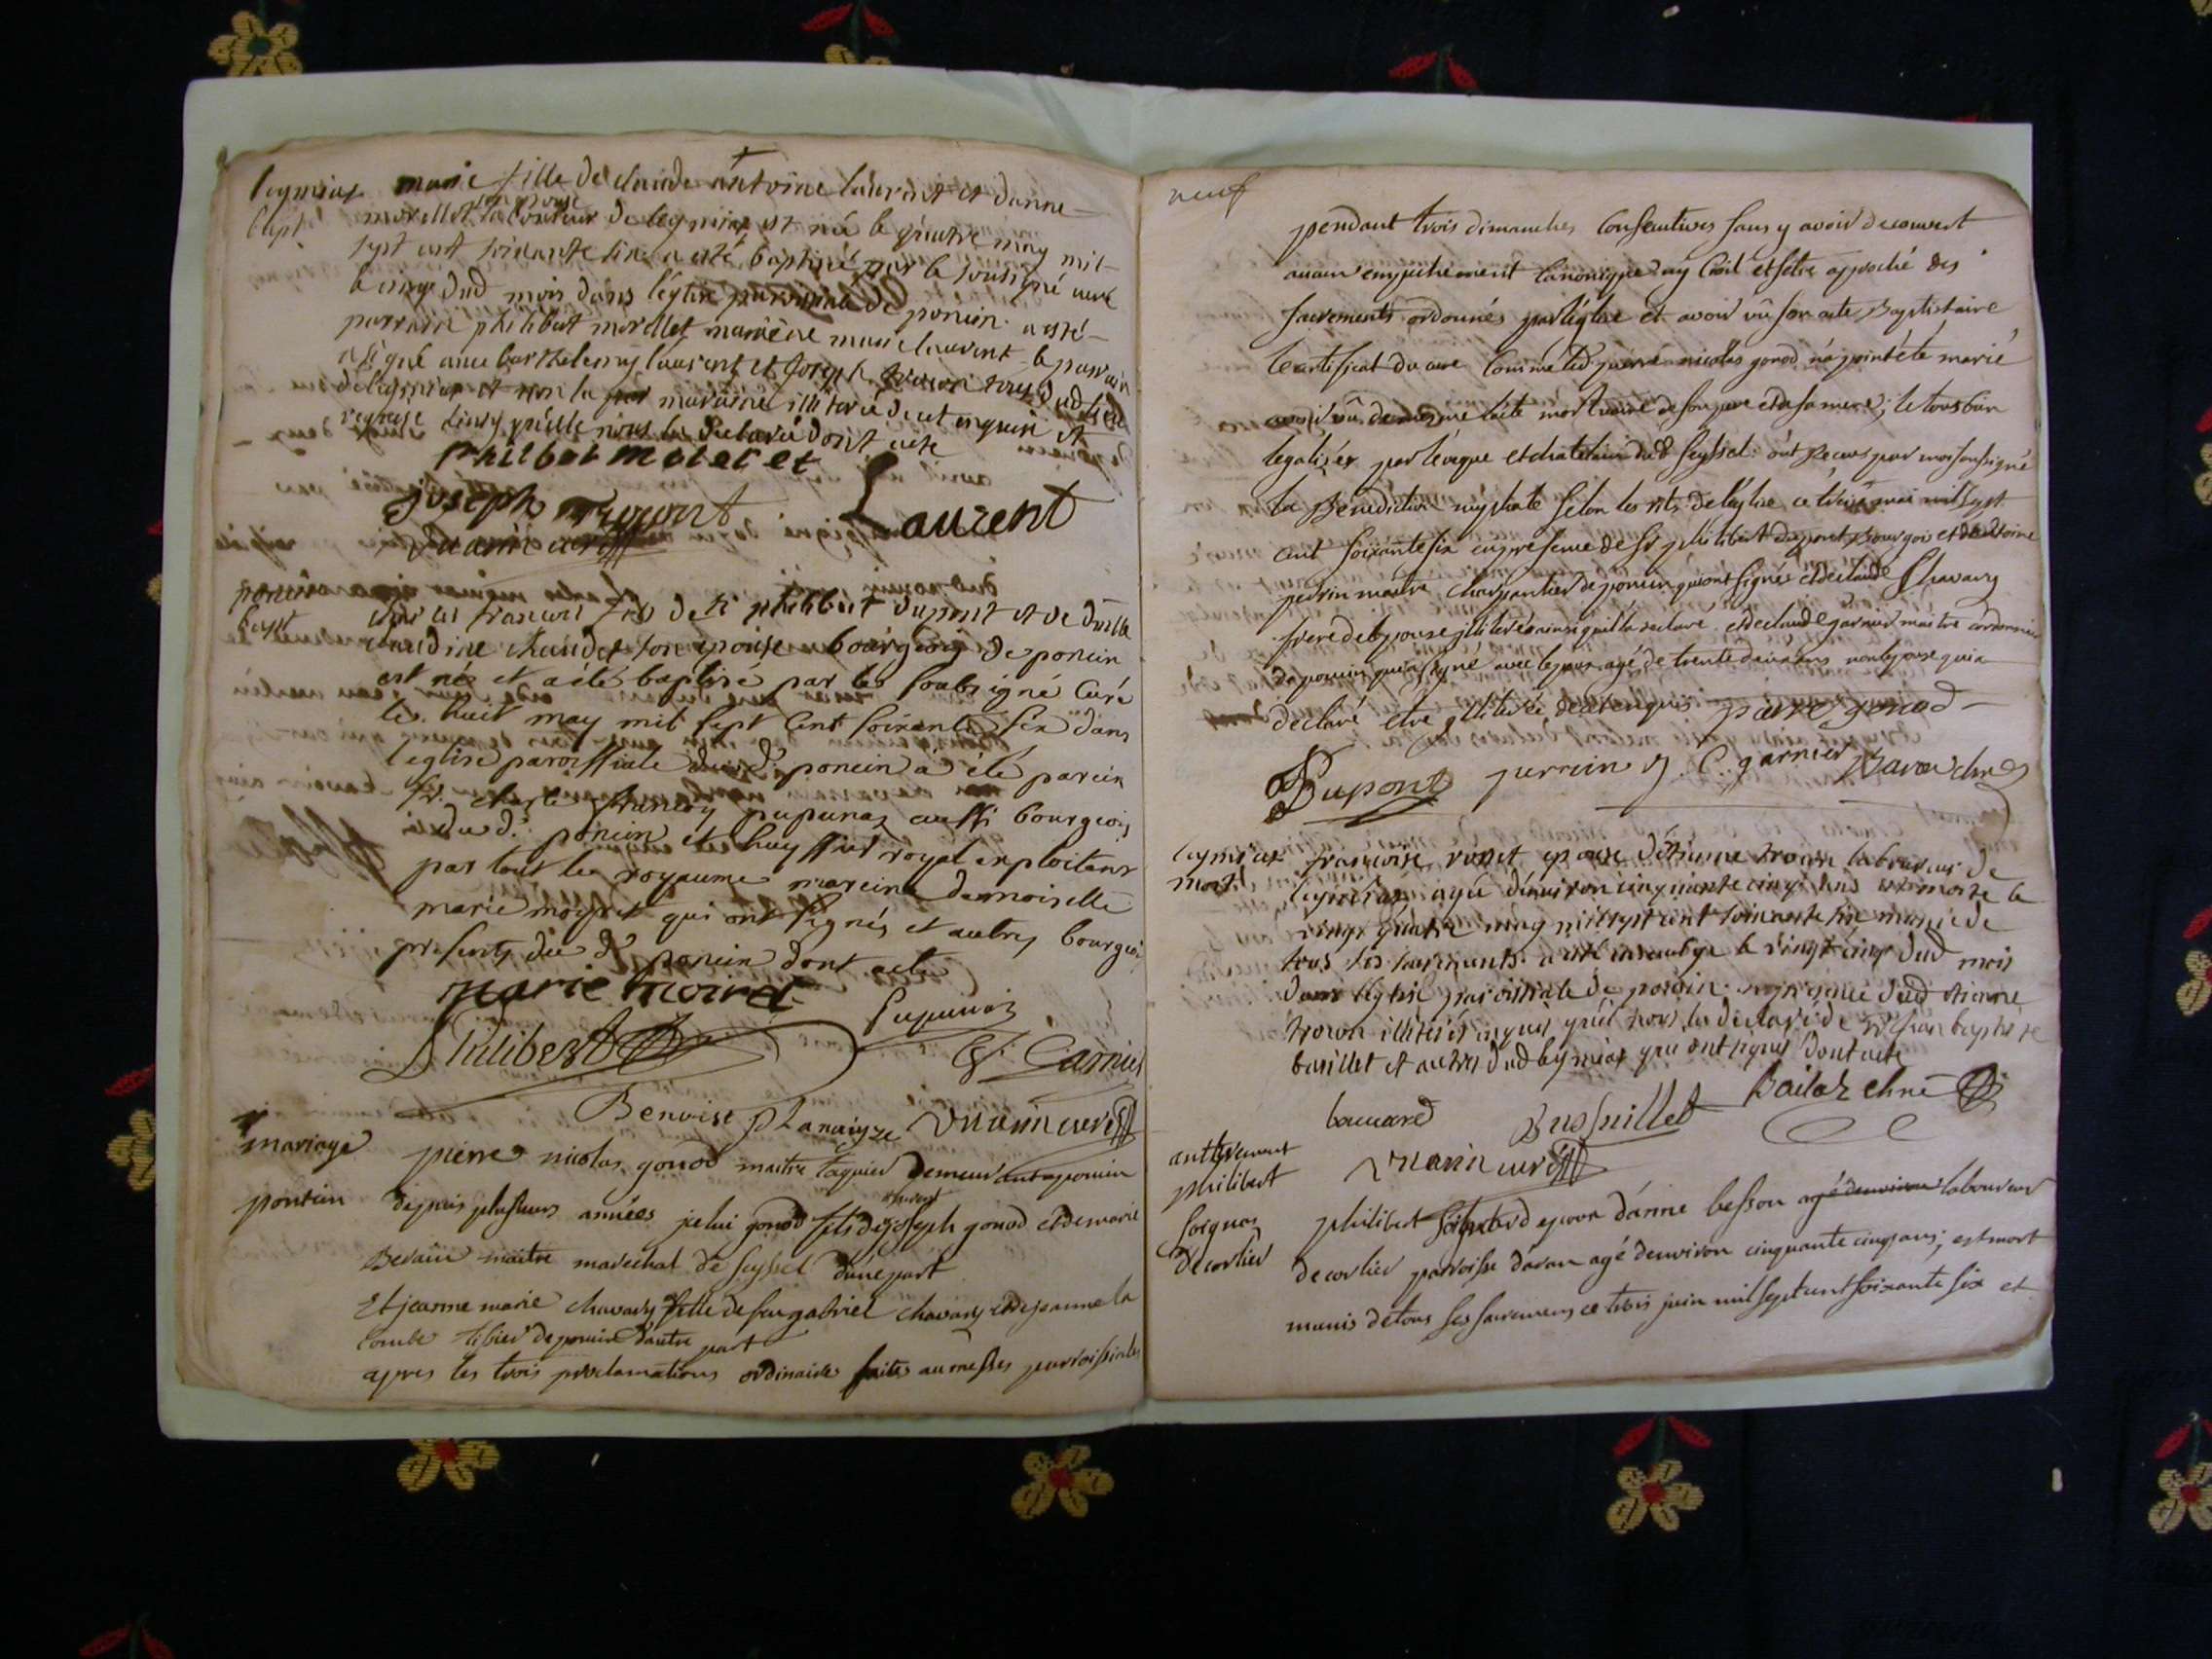 leymiat marie fille de claude antoine laurent et danne
bapt morellet son epouse laboureur de leymiat est née le quatre may mil
sept cent soixante six a eté baptisé par le sousigné curé
le cinq dud mois dans l'église paroissiale de poncin a esté
parrain philibert morellet marreine marie laurent le parrain
a signé avec barthelemy laurent et joseph trocon tous dud lieu
de leymiat et non la marraine illiterée de cet enquis et
requise ainsy qu'elle nous la déclaré dont acte
Philbert morelet
Joseph Trocont Laurent
curé
poncin charles francois fils de sr philibert dupont et de dlle
bapt claudine son epouse bourgeois de poncin
est né et a été baptisé par le soubsigné Curé
le huit may mil sept Cent soixante six dans
l'eglise paroissiale du d. poncin a été parein
sr. charle francoy pupunaz aussi bourgeois
du d. poncin et huyssier royal exploitant
par tout le royaume mareine demoiselle
marie moyret qui ont signés et autres bourgeois
presents du d. poncin dont acte
marie moiret
Pupunaz
Philibert
Benoist curé
mariage pierre nicolas gonod maitre demeurant a poncin
poncin depuis plusieurs années jcelui gonod fils de joseph gonod et de marie
maitre marechal de seyssel d'une part
Et jeanne marie chavany fille de feu gabriel chavany et de jeanne la
combe tissier de poncin d'autre part
apres les trois proclamations ordinaires faites au messes paroissiales
neuf
pendant trois dimanches Consecutives sans y avoir decouvert
aucun empechement Canonique ny Civil et s'etre approché des
sacrements ordonnés par l'église et avoir vû son acte Baptistaire
le certificat du curé Comme led pierre nicolas gonod n'a point été marié
avoir vû de mesme l'acte mortuaire de son pere et de sa mere; le tous bien
legalisés par l'evêque et chatelain dud Seyssel: ont recus par moi sousigné
la Benediction nuptiale selon les rits de l'eglise ce mai mil sept
cent soixante six en presence de Sr philibert dupont Bourgois et d'antoine
perrin maitre charpentier de poncin qui ont signés et de claude Chavany
frere de l'epouse illiteré ainsi qu'il l'a declaré et de claude garnier maitre cordonnier
de poncin qui a signé avec l'epoux agé de trente deux ans non l'epouse qui a
declaré etre illiterée de ce enquis pierre gonod
Dupont perrin C. garnier
leymiat francoise epouse d'etienne trocon laboureur de
mort leymiat agée d'environ cinquante cinq ans est morte le
vingt quatre may mil sept cent soixante six munie de
tous les sacrements a eté inhumée le vingt cinq dud mois
dans l'église paroissiale de poncin en presence dud etienne
trocon illiteré enquis qu'il nous la déclaré de sr jean baptiste
et autres dud leymiat qui ont signés dont acte
bouvard
curé
antterement
philibert
Soignas
de corlier
philibert epoux d'anne besson agé d'environ laboureur
de corlier parroisse d'aran agé d'environ cinquante cinq ans; est mort
munis de tous ses sacremens ce trois juin mil sept cent soixante six et